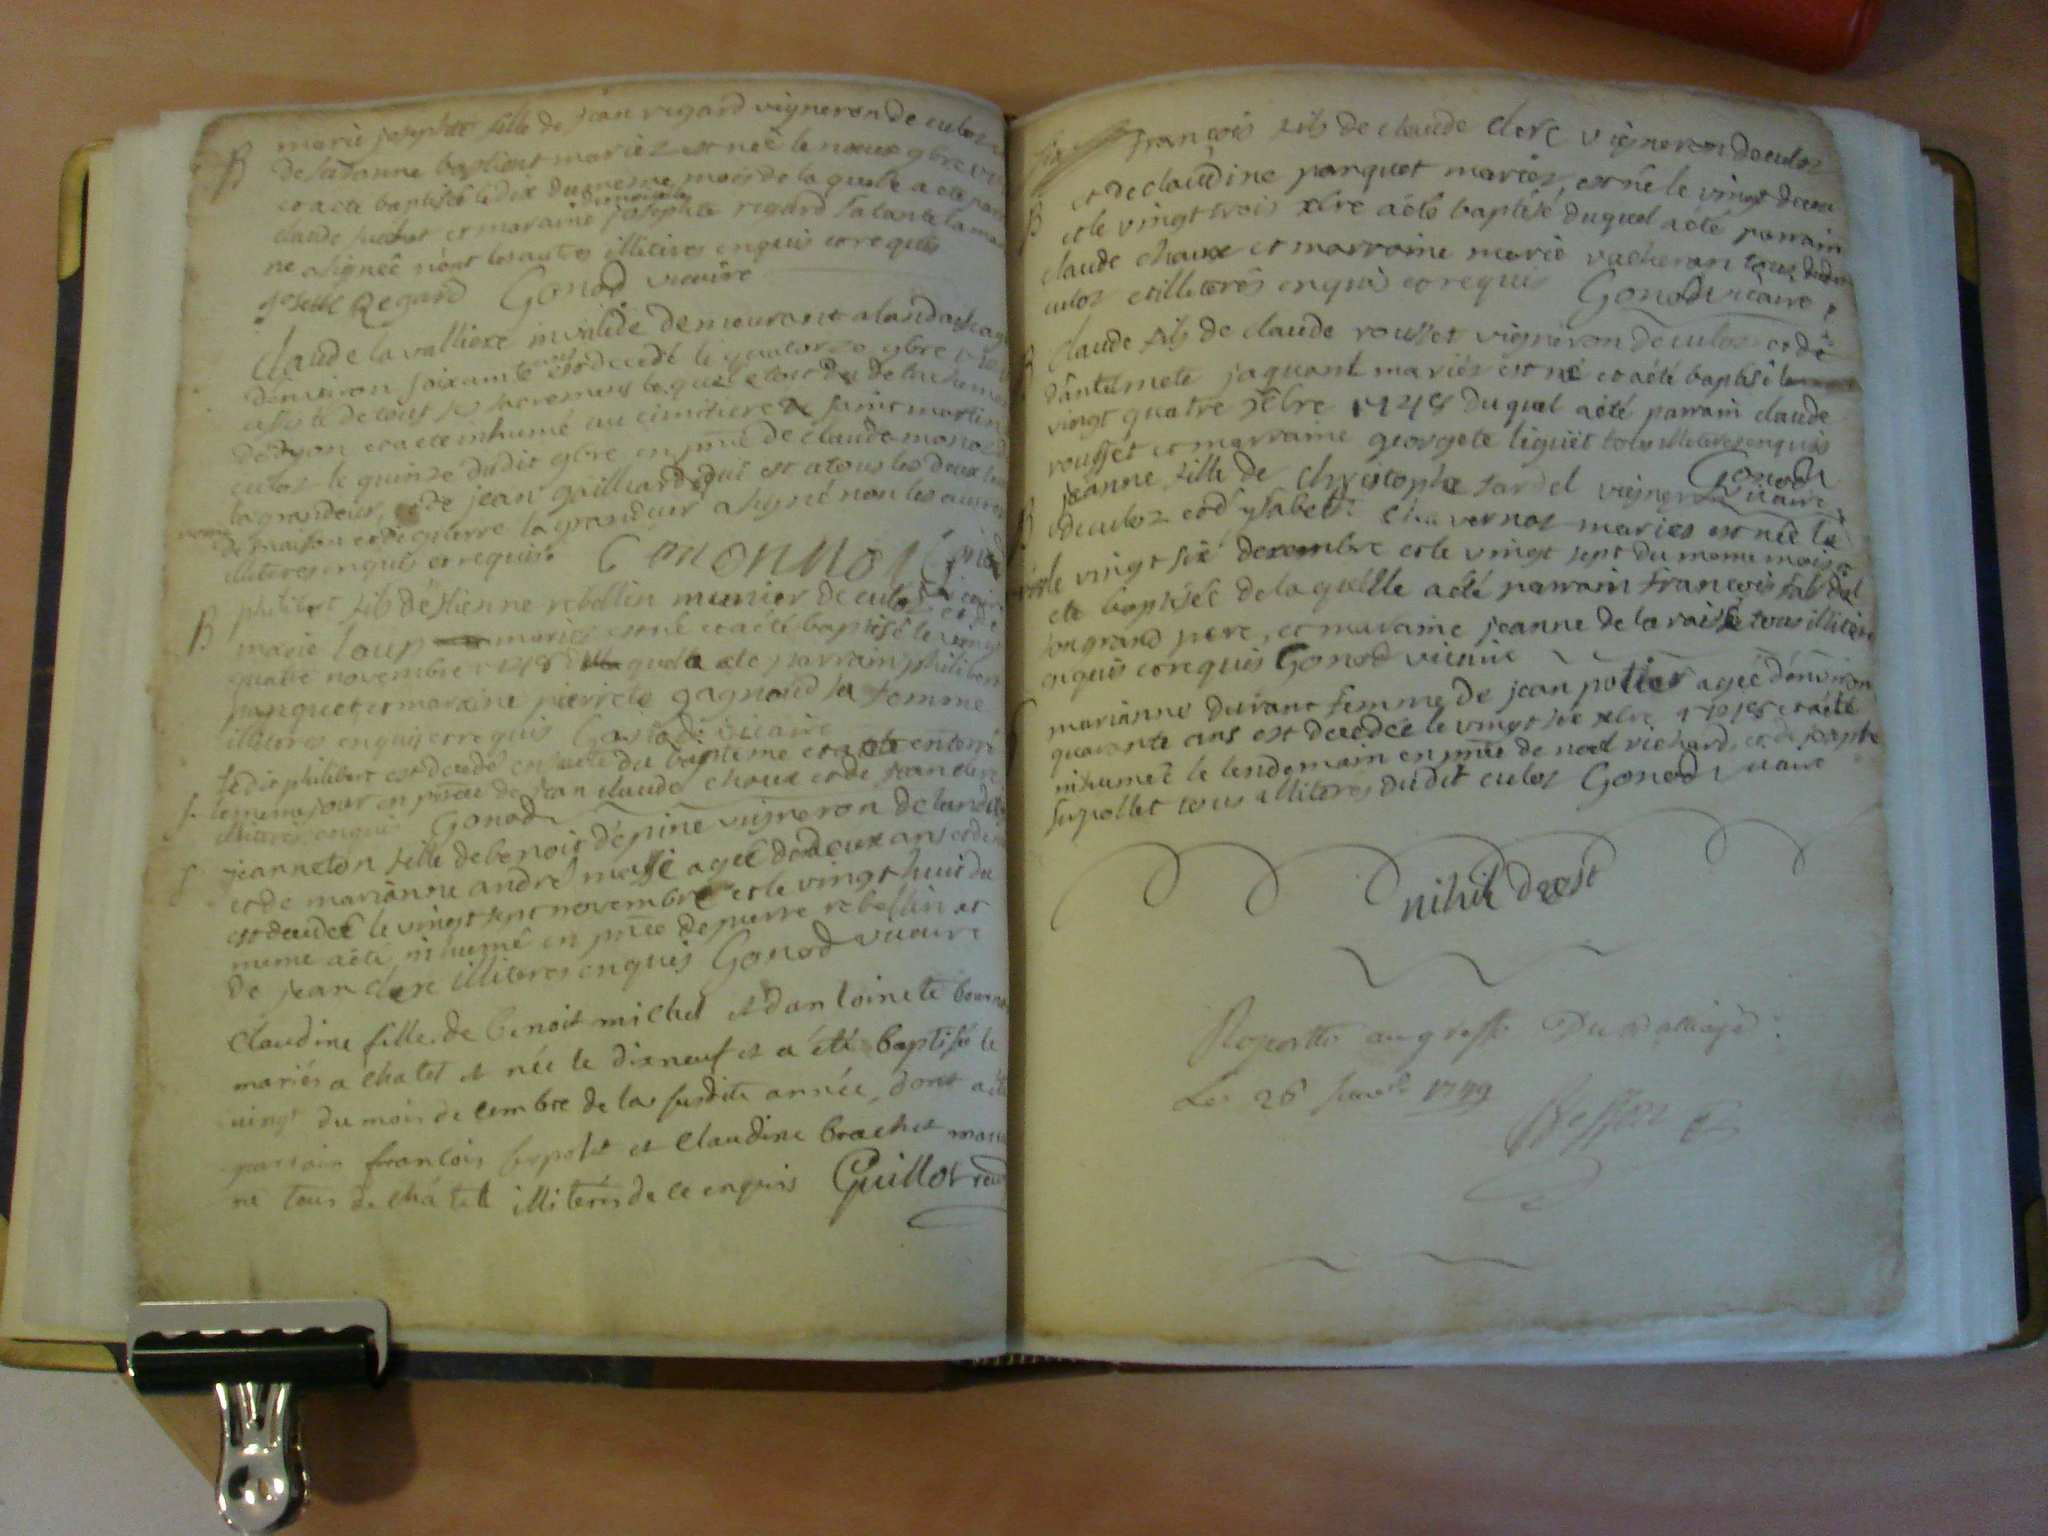 B marie josephte fille de jean regard vigneron de culoz
de ladonne bastient mariez est née le neuf 9bre
et a eté baptisée le dix du meme mois de laquelle a eté
claude suchet et maraine demoiselle josephte regard sa tante la
ne a signée nont les autres illiteres enquis et requis
Regard Gonod vicaire
claude lavalliere invalide demeurant a landaise
denviron soixante ans est decedé le quatorze 9bre
de tous les sacremens lequel
de lyon et a eté inhumé au cimitiere de saint martin
culoz le quinze dudit 9bre en pnce de claude monod
la grandeur, et de jean gailliard qui est a tous les deux
de maison et de pierre la grandeur a signé non les autres
illiteres enquis et requis.
B philibert fils détienne rebellin munier de culoz et de
marie loup mariez est né et a eté baptisé le vingt
quatre novembre 1748 quel a ete parrain philibert
panquet et maraine pierrete gagnond sa femme
illiteres enquis et requis Gonod vicaire
ledit philibert est decedé ensuite du bapteme et a ete enterré
le meme jour en pnce de jean claude choux et de jean clerc
illiteres enquis Gonod
jeanneton fille de benoit dépine vigneron de
et de marianne andré massé agée de deux ans et
est decedée le vingt sept novembre et le vingt huit du
meme a eté inhumé en pnce de pierre rebellin et
de jean clerc illiteres enquis Gonod vicaire
Claudine fille de benoit michel et dantoinete
mariés a chatel est née le dixneuf et a été baptisée le
vingt du mois decembre de la susdite année, dont a été
parrain francois et Claudine brachet
ne tous de châtell illiterés de ce enquis Guillot
françois fils de claude clerc vigneron de culoz
et de claudine panquet mariez, est né le vingt deux
B et le vingt trois xbre a été baptisé duquel a eté parrain
claude choux et marraine marie vacheron tous dudit
culoz et illiterés enquis et requis Gonod vicaire
B claude fils de claude rousset vigneron de culoz et de
dantelmete jaquant mariés est né et a été baptisé le
vingt quatre xbre 1748 duquel a eté parrain claude
rousset et marraine georgete liquet tous illiteres enquis
Gonod
B jeanne fille de christophe sardel vigneron vicaire
de culoz et d'ysabeth chavernoz mariez est née le
vingt six decembre et le vingt sept du meme mois a
ete baptisée de laquelle a eté parrain francois sardel
son grand pere, et maraine jeanne de la raise tous illiteres
enquis et requis Gonod vicaire
marianne durant femme de jean potier agée dénviron
quarante ans est decedée le vingt six xbre 1748 et a été
inhumée le lendemain en pnce de noel richard, et de joseph
supollet tous illiterés dudit culoz Gonod vicaire
nihil deest
Raportté au greffe Du Balliage
Le 26 1749